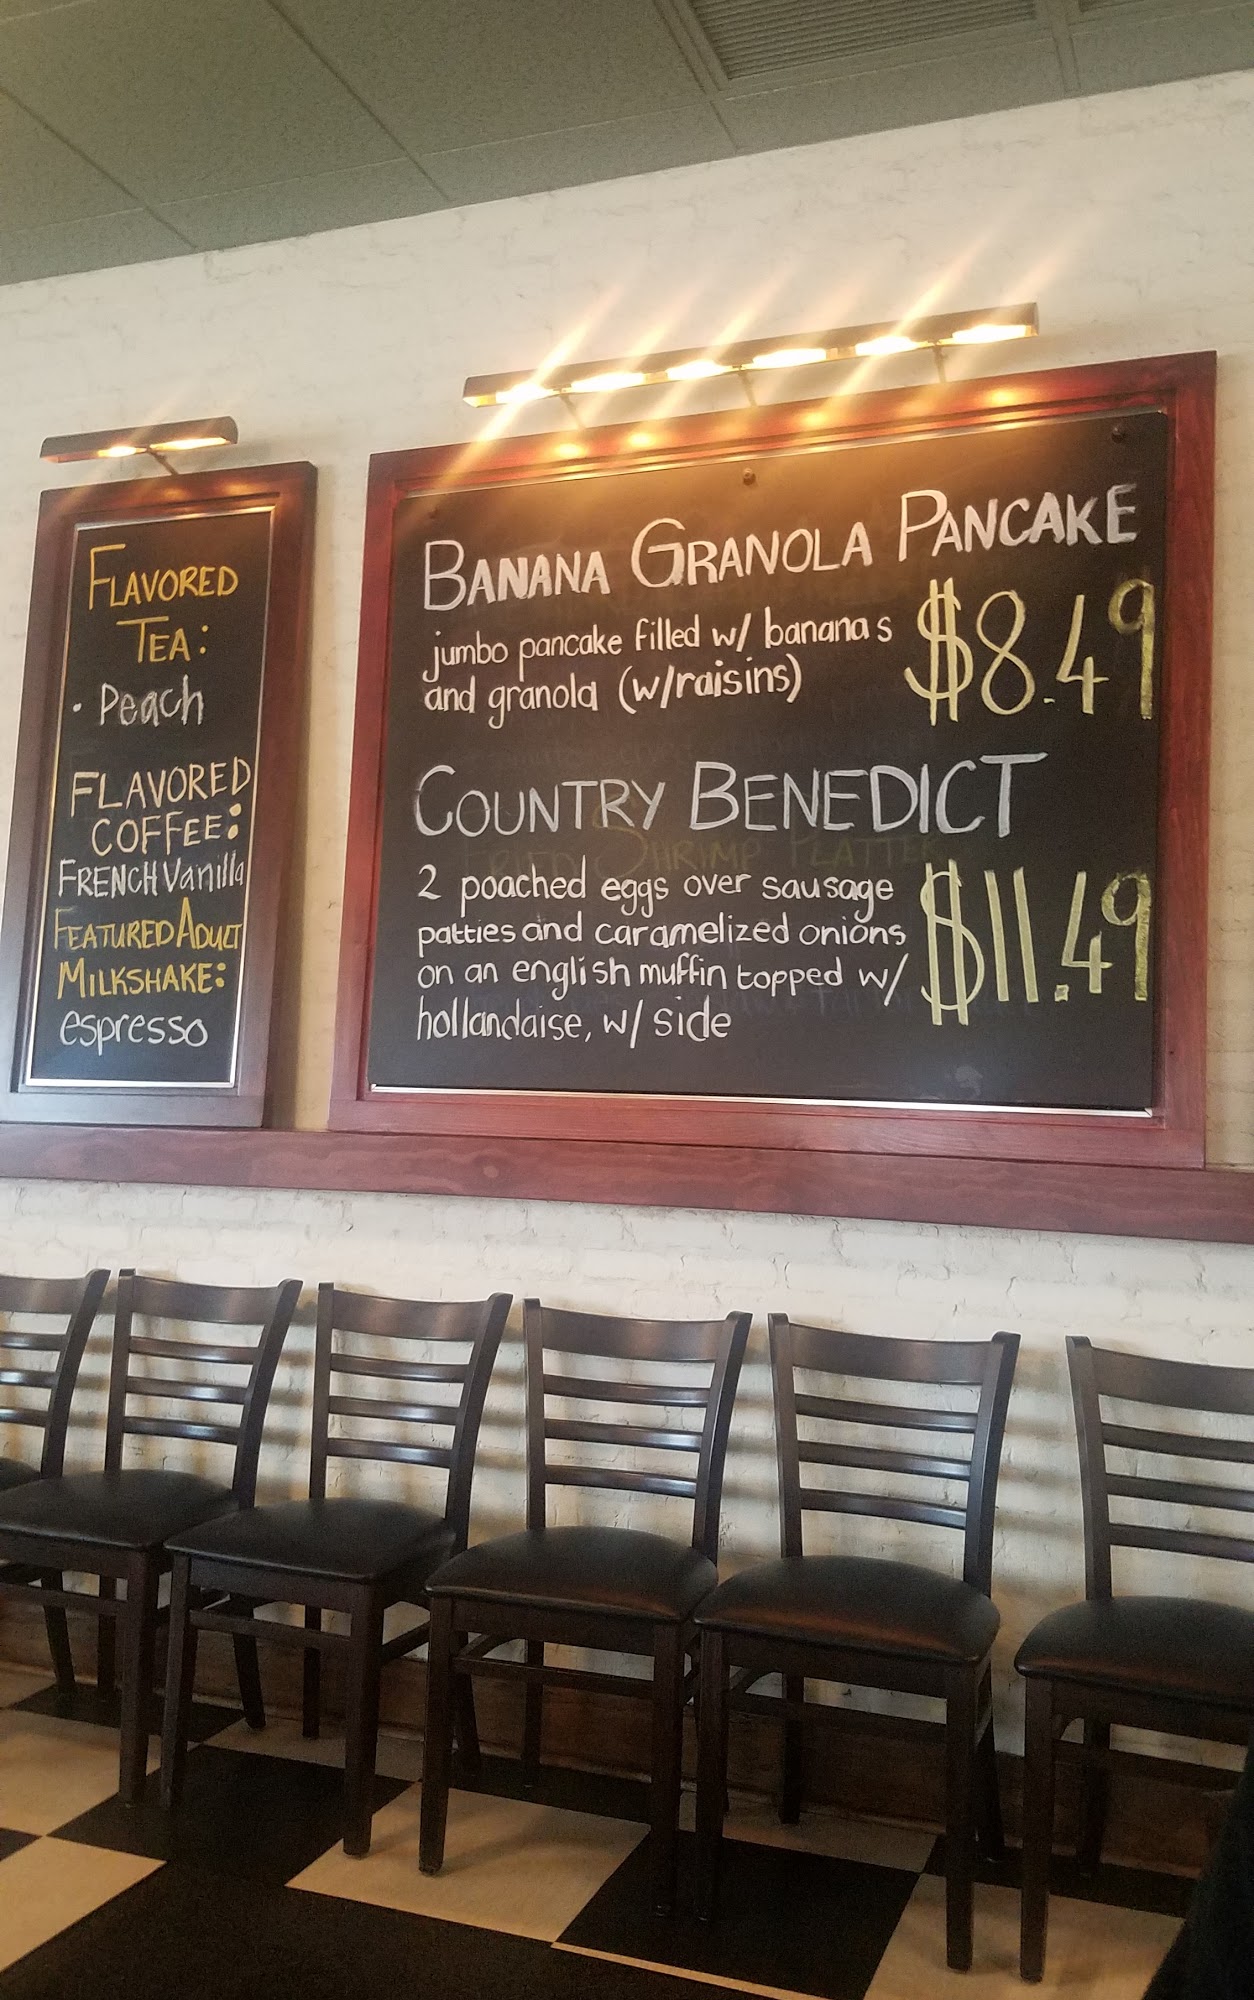 FLAVORED
TEA:
• Peach
FLAVORED
COFFEE:
FRENCH Vanilla
FEATURED ADULT
MILKSHAKE:
espresso
BANANA GRANOLA PANCAKE
jumbo pancake filled w/ bananas
and granola (w/raisins)
$8.49
COUNTRY BENEDICT
2 poached eggs over sausage
patties and caramelized onions
on an english muffin topped w/
hollandaise, w/ side
$11.49
SHRIMP PLATTER